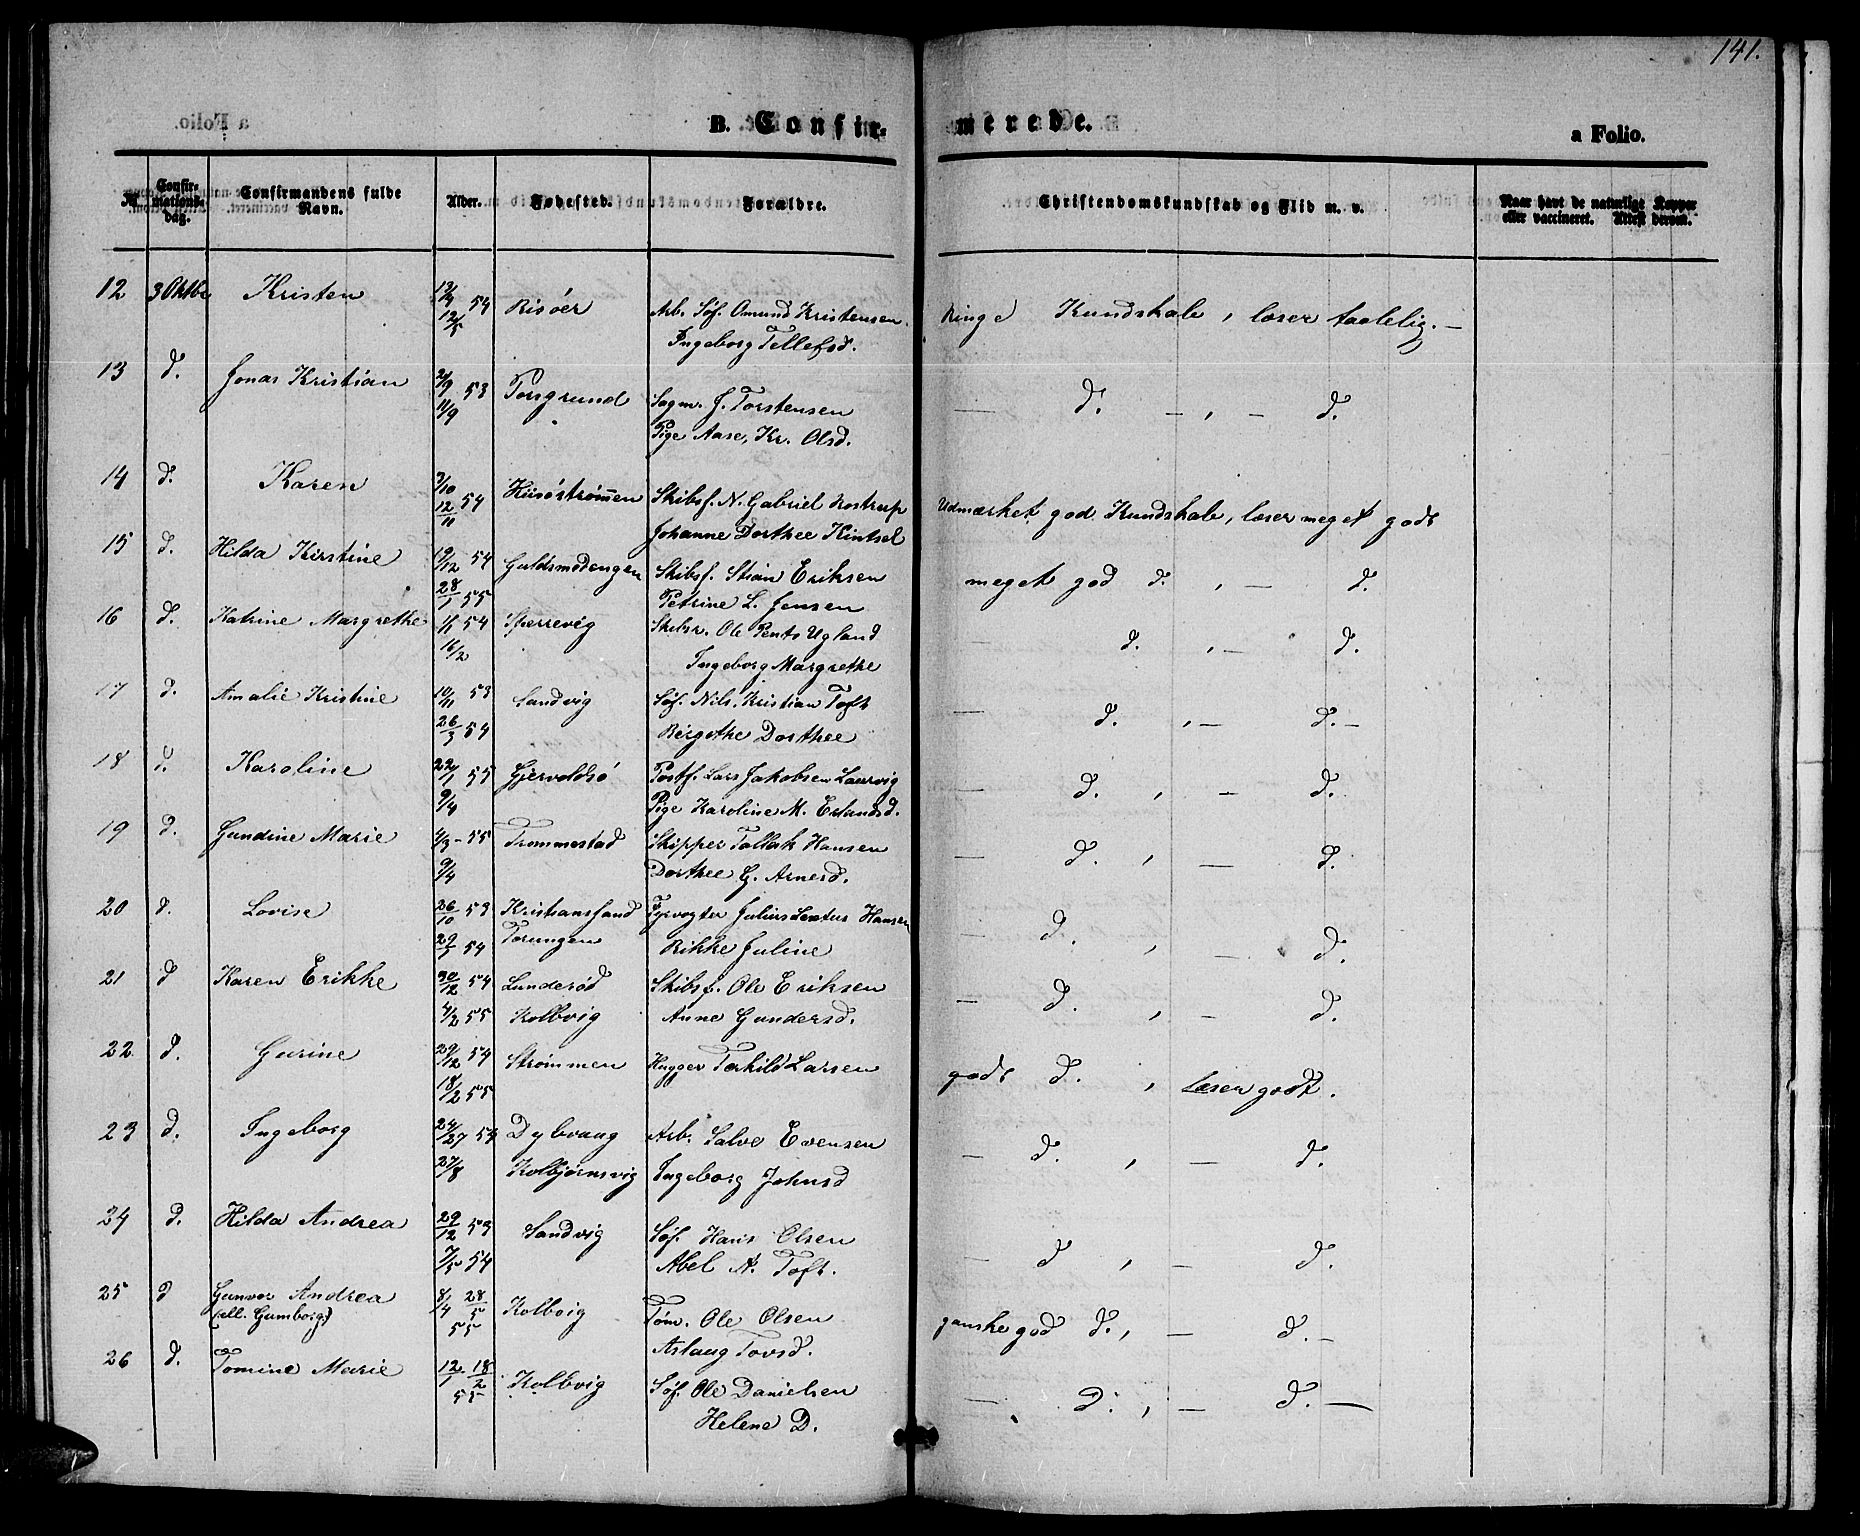 141.
B. Confir-
merede.
a Folio.
№
Confir-
mations-
dag.
Confirmandens fulde
Navn.
Alder.
Fødested.
Forældre.
Christendomskundskab og Flid m. v.
Naar havt de naturlige Kopper
eller vaccineret. Attest derom.
12 3 Oktbr Kristen 54 Risöer Arb. Söf. Omund Kristensen.
12/5 Ingeborg Tellefsd.
Ringe Kundskab, læser taalelig. —
13 d. Jonas Kristian 2/9 53 Porsgrund Sagm. J. Torstensen
11/9 Pige Aase, Kr. Olsd.
— d. — , — d.
14 d. Karen 3/10 54 Hiisöströmmen Skibsf. N. Gabriel Rostrup
12/11 Johanne Dorthee Kintsel
Udmærket god Kundskab, læser meget godt
15 d. Hilda Kirstine 19/12 54 Guldsmedengen Skibsf. Stian Eriksen
28/1 55 Petrine L. Jensen
meget god d. , — d.
16 d. Katrine Margrethe 1/1 54 Sperrevig Skibsr. Ole Pents Ugland
16/2 Ingeborg Margrethe
— d. , — d.
17 d. Amalie Kristine 10/11 53 Sandvig Söf. Nils Kristian Toft
26/3 54 Birgethe Dorthee
— d. , — d. —
18 d. Karoline 22/1 55 Gjervoldsö Postf. Lars Jakobsen Laurvig
9/4 Pige Karoline M. Erlandsd.
— d. , — d.
19 d. Gundine Marie 4/3 - 55 Trommestad Skipper Tallak Hansen
9/4 Dorthee G. Arnesd.
— d. , — d.
20 d. Lovise 26/10 53 Kristianssand Fyrvogter Julius Sextus Hansen
29/5 54 Torungen Rikke Juline
— d. , — d.
21 d Karen Erikke 30/12 54 Lunderöd Skibsf. Ole Eriksen
4/2 55 Kolbvig Anne Gundersd.
— d. , — d.
22 d. Gurine 29/12 54 Strömmen Hugger Terkild Larsen
18/2 55
godt d. , læser godt.
23 d. Ingeborg 24/27 54 Dybvaag Arb. Salve Evensen
27/8 Kolbjørnsvig Ingeborg Johnsd
— d. , — d.
24 d. Hilda Andrea 29/12 53 Sandvig Söf. Hans Olsen
7/5 54 Abel N. Toft.
— d , — d.
25 d Gunvor Andrea 8/4 28/5 Kolbvig Töm. Ole Olsen
(ell. Gumborg) 55 Aslaug Tovsd.
ganske god d. , — d. —
26 d. Tomine Marie 12/1 - 18/2 Kolbvig Söf. Ole Danielsen
55 Helene D.
— d. , — d. —